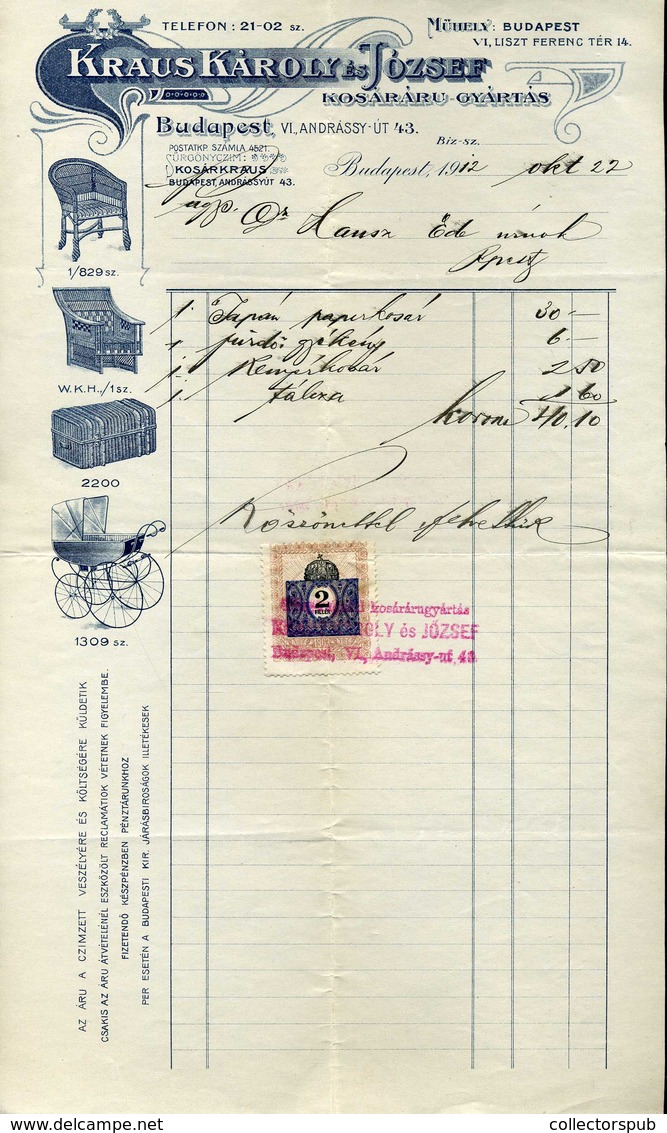 TELEFON: 21-02 SZ.
MŰHELY: BUDAPEST
VI, LISZT FERENC TÉR 14.
KRAUS KÁROLY ÉS JÓZSEF
KOSÁRÁRU-GYÁRTÁS
Budapest, VI., ANDRÁSSY-ÚT 43.
Biz-sz.
POSTATKP. SZÁMLA 4521.
SÜRGÖNYCZIM:
KOSÁRKRAUS
BUDAPEST, ANDRÁSSYÚT 43.
Budapest, 1912 okt 22
Dr Hansz Ede urnak
1/829 SZ.
1. Japán papirkosár 30 —
1 fürdő gyékény 6 —
W.K.H./1 SZ.
1. Kenyérkosár 2 50
1. tálcza 1 60
korona 40.10
2200
Köszönettel
2
FILLÉR
kosárárugyártás
OLY és JÓZSEF
Budapest, VI, Andrássy-ut 43
1309 SZ.
AZ ÁRU A CZIMZETT VESZÉLYÉRE ÉS KÖLTSÉGÉRE KÜLDETIK
CSAKIS AZ ÁRU ÁTVÉTELENÉL ESZKÖZÖLT RECLAMÁTIOK VÉTETNEK FIGYELEMBE.
FIZETENDŐ KÉSZPÉNZBEN PÉNZTÁRUNKHOZ
PER ESETÉN A BUDAPESTI KIR. JÁRÁSBIROSÁGOK ILLETÉKESEK
collectorspub